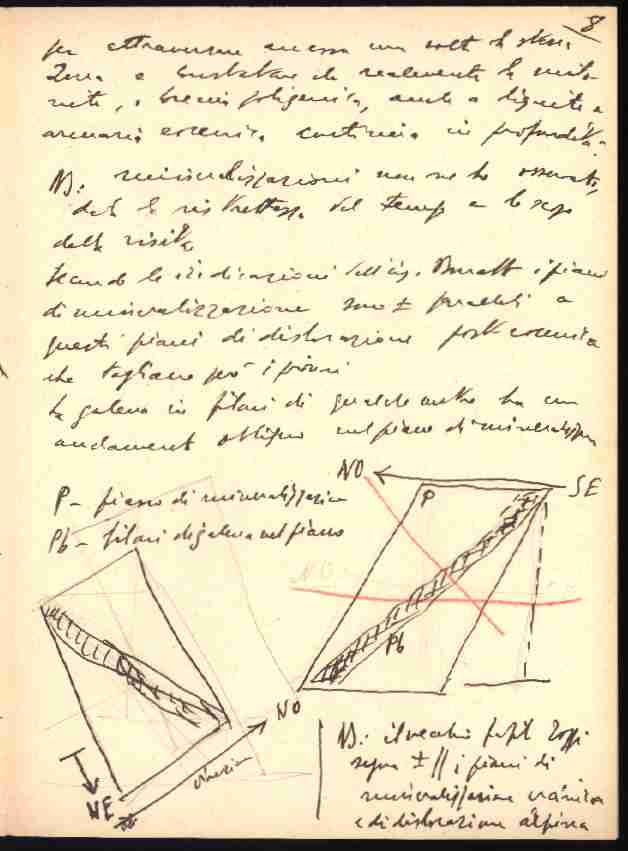 8
per attraversare ancora una volta la stessa
zona e constatare che realmente la milo-
nite, o breccia poligenica, anche a
arenaria eocenica continua in profondità.
NB: mineralizzazioni non ne ho osservate,
data la ristrettezza del tempo e lo scopo
della visita
Secondo le indicazioni dell'ing. i piani
di mineralizzazione sono ± paralleli a
questi piani di dislocazione post eocenica
che tagliano però i primi
La galena in filoni di qualche metro ha un
andamento obliquo nel piano di mineralizzazione
P - piano di mineralizzazione
Pb - filoni di galena nel piano
NO SE
P
NO
Pb
NO
NE
NB: il vecchio
segna ± // i piani di
mineralizzazione
e di dislocazione alpina